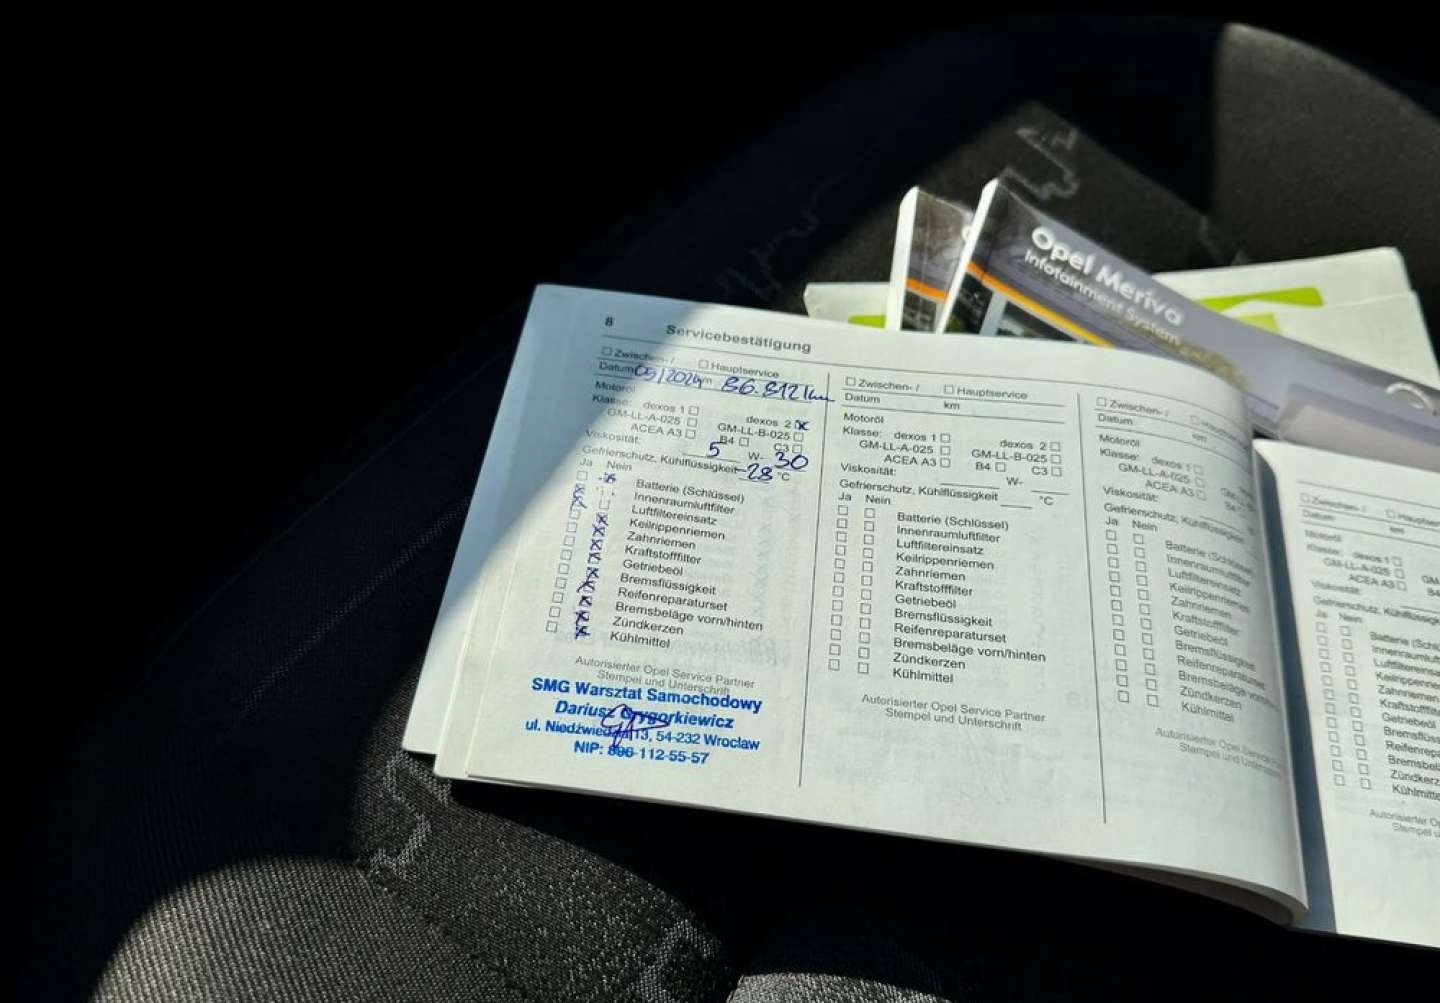 Opel Meriva
Infotainment System
8 Servicebestätigung
☐ Zwischen- / ☐ Hauptservice
Datum 05/2024 km 86.812 km
Motoröl
Klasse: dexos 1 ☐ dexos 2 ☒
GM-LL-A-025 ☐ GM-LL-B-025 ☐
ACEA A3 ☐ B4 ☐ C3 ☐
Viskosität: 5 W- 30
Gefrierschutz, Kühlflüssigkeit -28 °C
Ja Nein
Batterie (Schlüssel)
Innenraumluftfilter
Luftfiltereinsatz
Keilrippenriemen
Zahnriemen
Kraftstofffilter
Getriebeöl
Bremsflüssigkeit
Reifenreparaturset
Bremsbeläge vorn/hinten
Zündkerzen
Kühlmittel
Autorisierter Opel Service Partner
Stempel und Unterschrift
SMG Warsztat Samochodowy
Dariusz Grygorkiewicz
ul. 13, 54-232 Wrocław
NIP: 896-112-55-57
☐ Zwischen- / ☐ Hauptservice
Datum km
Motoröl
Klasse: dexos 1 ☐ dexos 2 ☐
GM-LL-A-025 ☐ GM-LL-B-025 ☐
ACEA A3 ☐ B4 ☐ C3 ☐
Viskosität: W-
Gefrierschutz, Kühlflüssigkeit °C
Ja Nein
☐ ☐ Batterie (Schlüssel)
☐ ☐ Innenraumluftfilter
☐ ☐ Luftfiltereinsatz
☐ ☐ Keilrippenriemen
☐ ☐ Zahnriemen
☐ ☐ Kraftstofffilter
☐ ☐ Getriebeöl
☐ ☐ Bremsflüssigkeit
☐ ☐ Reifenreparaturset
☐ ☐ Bremsbeläge vorn/hinten
☐ ☐ Zündkerzen
☐ ☐ Kühlmittel
Autorisierter Opel Service Partner
Stempel und Unterschrift
☐ Zwischen- / ☐
Datum km
Motoröl
Klasse: dexos 1 ☐
GM-LL-A-025 ☐
ACEA A3 ☐
Viskosität:
Gefrierschutz, Kühlflüssigkeit
Ja Nein
☐ ☐ Batterie
☐ ☐ Innenraumluftfilter
☐ ☐ Luftfiltereinsatz
☐ ☐ Keilrippenriemen
☐ ☐ Zahnriemen
☐ ☐ Kraftstofffilter
☐ ☐ Getriebeöl
☐ ☐ Bremsflüssigkeit
☐ ☐ Reifenreparaturset
☐ ☐ Bremsbeläge
☐ ☐ Zündkerzen
☐ ☐ Kühlmittel
Autorisierter Opel Service
Stempel und Unterschrift
☐ Zwischen- / ☐
Datum km
Motoröl
Klasse: dexos 1 ☐
GM-LL-A-025 ☐
ACEA A3 ☐
Viskosität:
Gefrierschutz,
Ja Nein
☐ ☐ Batterie
☐ ☐
☐ ☐
☐ ☐
☐ ☐ Zahnriemen
☐ ☐
☐ ☐ Getriebeöl
☐ ☐
☐ ☐
☐ ☐
☐ ☐
☐ ☐
Autorisierter
Stempel